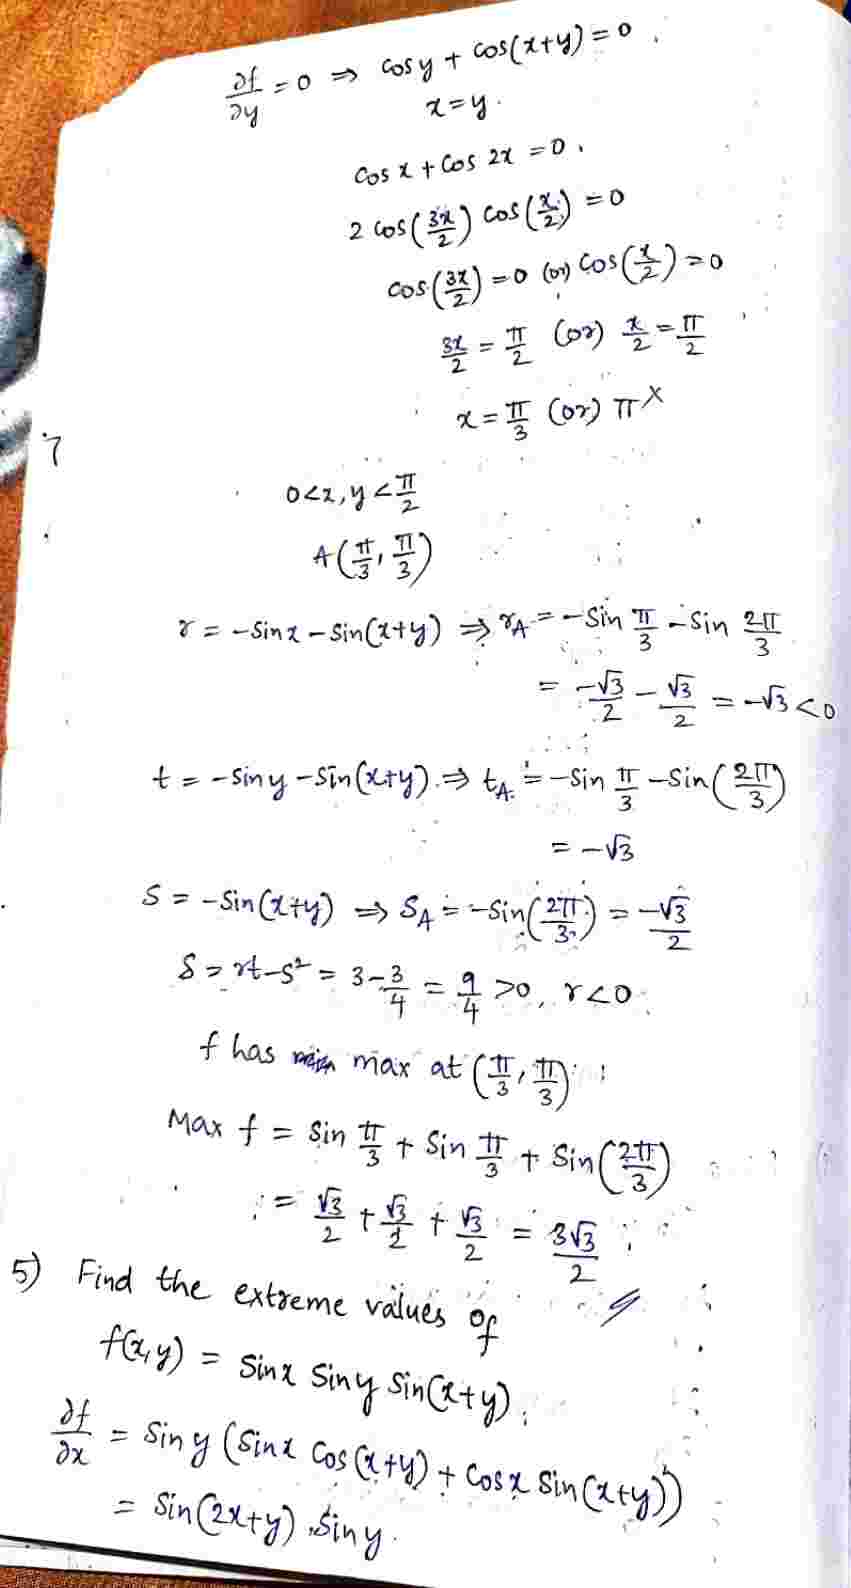 ∂f/∂y = 0 ⇒ cos y + cos(x+y) = 0.
x = y.
cos x + cos 2x = 0.
2 cos(3x/2) cos(x/2) = 0
cos(3x/2) = 0 (or) cos(x/2) = 0
3x/2 = π/2 (or) x/2 = π/2
x = π/3 (or) π ×
0<x, y<π/2
A(π/3, π/3)
r = -sin x - sin(x+y) ⇒ r_A = -sin π/3 - sin 2π/3
= -√3/2 - √3/2 = -√3 < 0
t = -sin y - sin(x+y) ⇒ t_A = -sin π/3 - sin(2π/3)
= -√3
S = -sin(x+y) ⇒ S_A = -sin(2π/3) = -√3/2
S = rt-s² = 3-3/4 = 9/4 >0, r<0
f has max at (π/3, π/3)
Max f = sin π/3 + sin π/3 + sin(2π/3)
= √3/2 + √3/2 + √3/2 = 3√3/2
5) Find the extreme values of
f(x,y) = sin x sin y sin(x+y).
∂f/∂x = sin y (sin x cos(x+y) + cos x sin(x+y))
= sin(2x+y) . sin y.